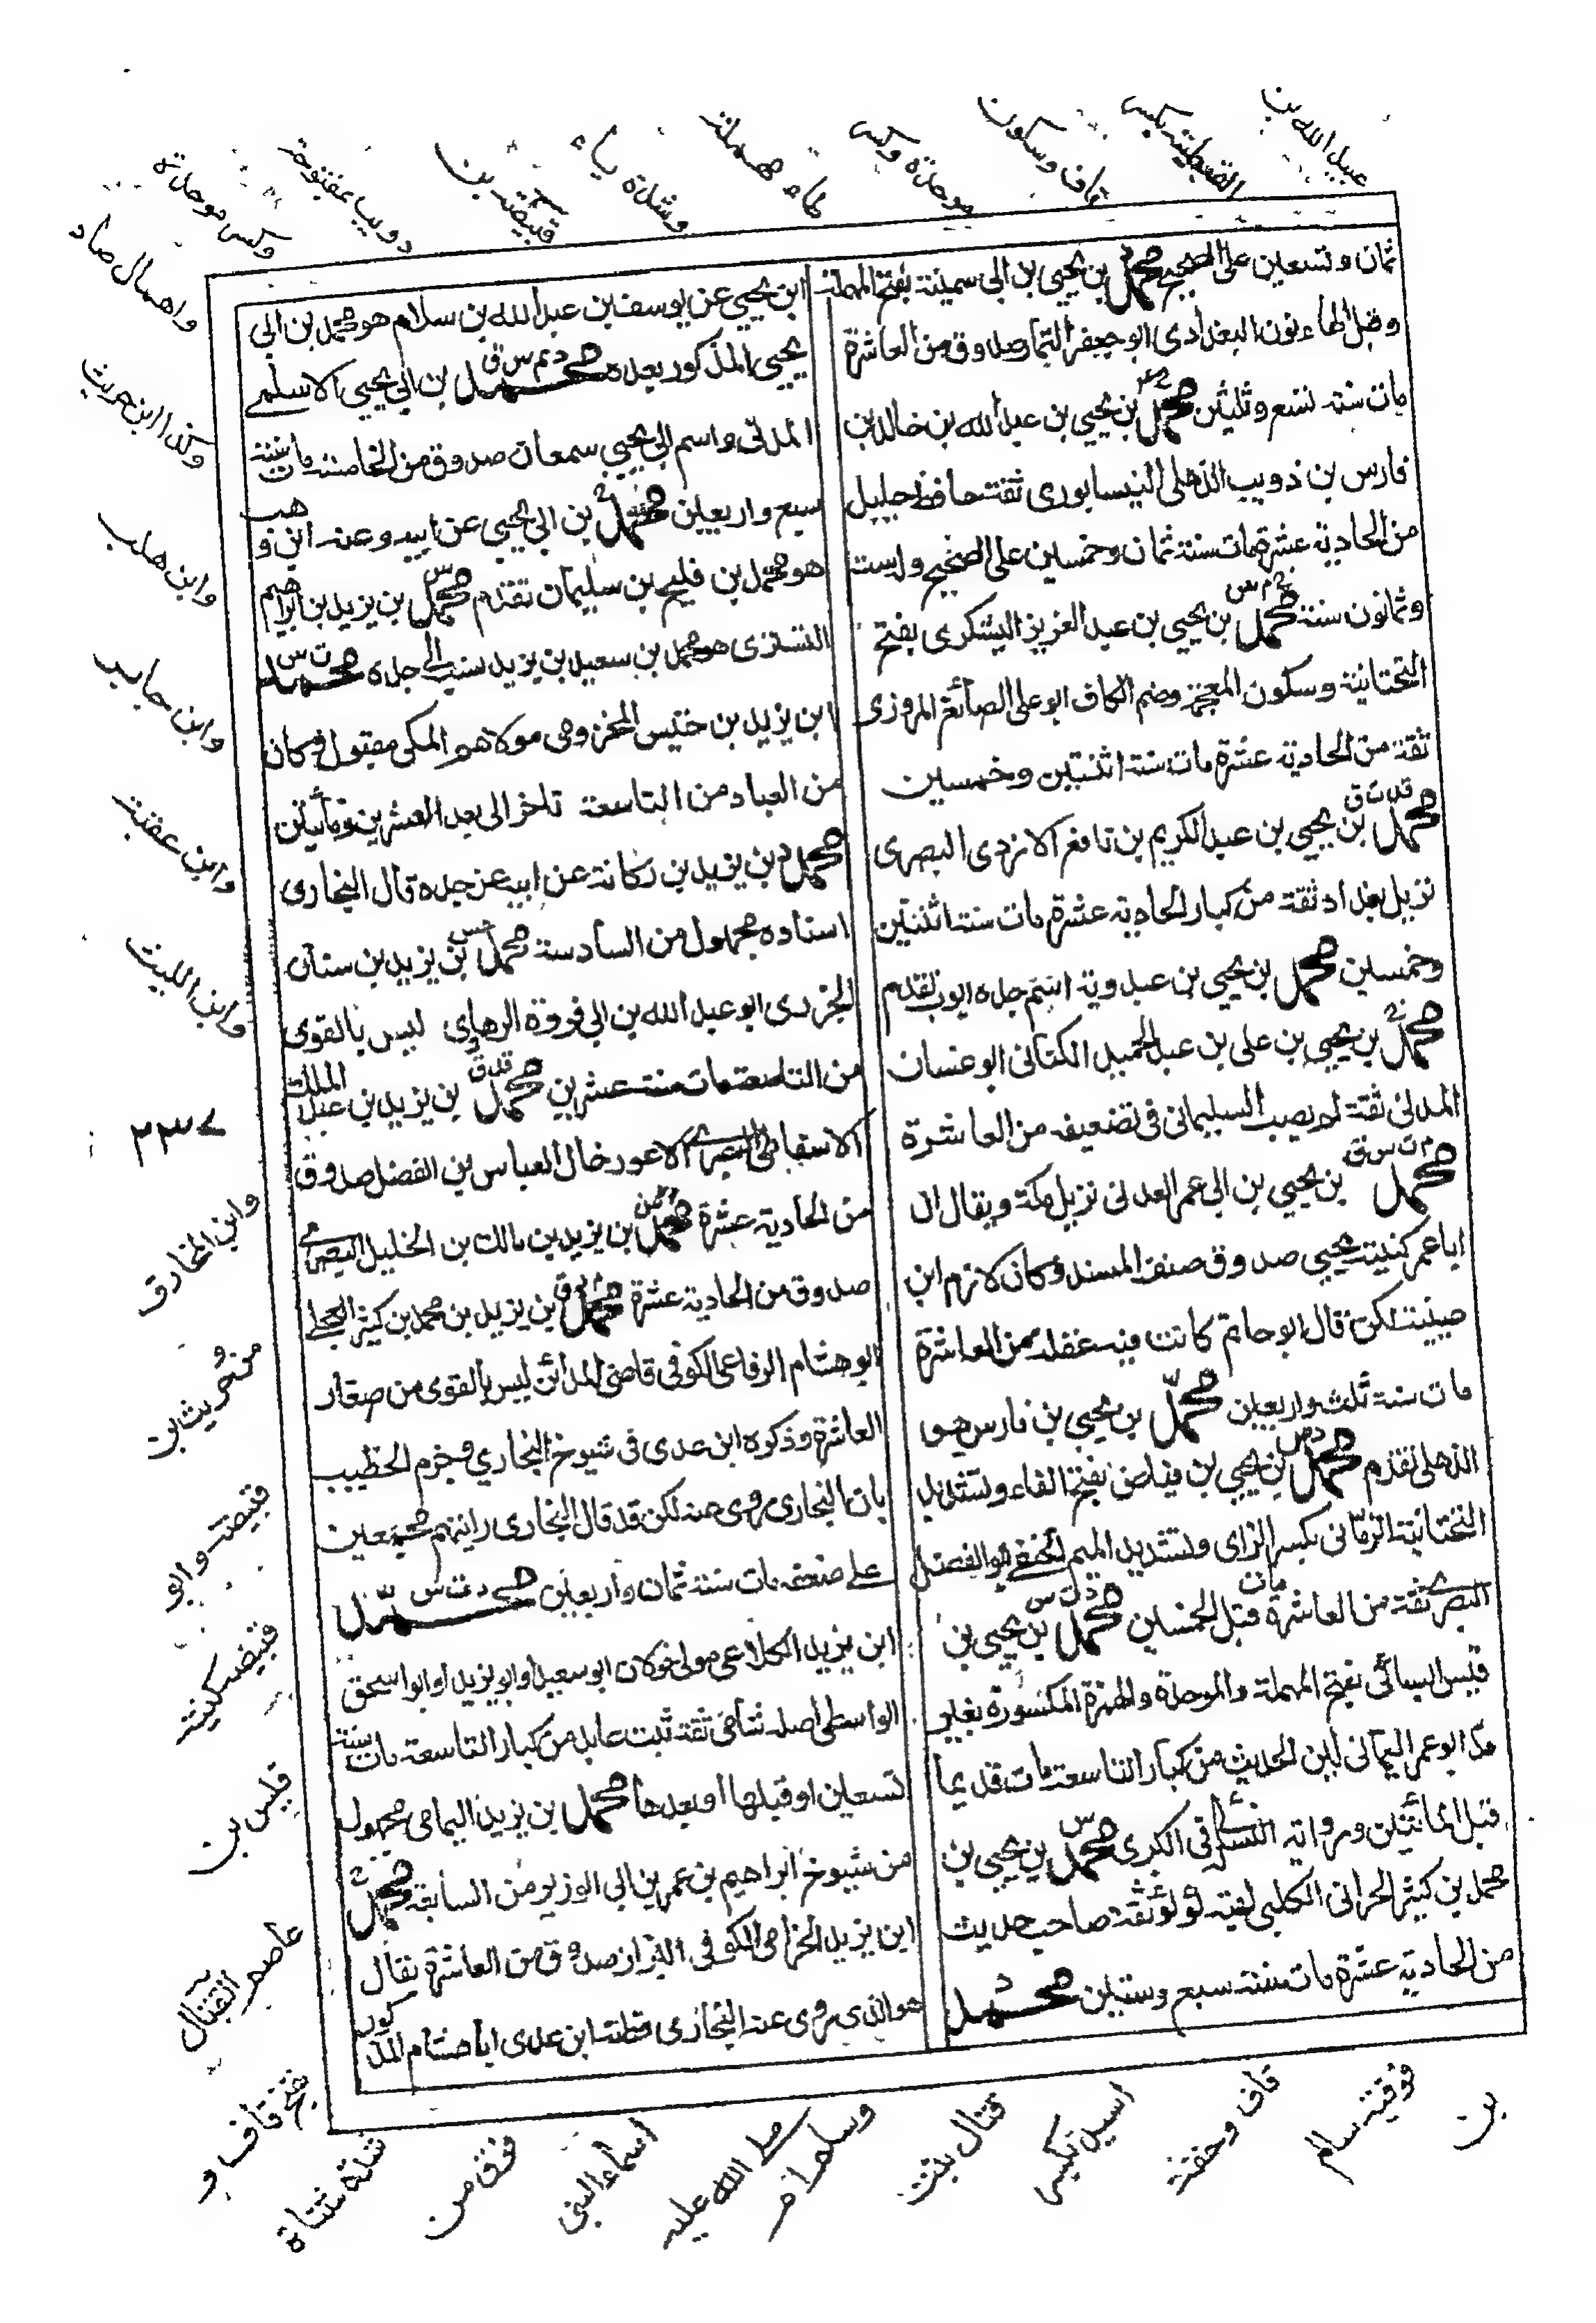 ثمان وتسعين على الصحيح محمد بن يحيى بن ابى سمينة بفتح المهملة
وقبل الهاء نون البغدادى ابو جعفر التمار صدوق من العاشرة
مات سنة تسع وثلثين محمد بن يحيى بن عبد الله بن خالد بن
فارس بن ذويب الذهلى النيسابورى ثقة حافظ جليل
من الحادية عشرة مات سنة ثمان وخمسين على الصحيح وله ست
وثمانون سنة محمد بن يحيى بن عبد العزيز اليشكرى بفتح
التحتانية وسكون المعجمة وضم الكاف ابو على الصائغ المروزى
ثقة من الحادية عشرة مات سنة اثنتين وخمسين
محمد بن يحيى بن عبد الكريم بن نافع الازدى البصرى
نزيل بغداد ثقة من كبار الحادية عشرة مات سنة اثنتين
وخمسين محمد بن يحيى بن عبدوية اسم جده ايوب تقدم
محمد بن يحيى بن على بن عبد الحميد الكنانى ابو غسان
المدنى ثقة لم يصب السليمانى فى تضعيفه من العاشرة
محمد بن يحيى بن ابى عمر العدنى نزيل مكة ويقال ان
ابا عمر كنيت يحيى صدوق صنف المسند وكان لازم ابن
عيينة لكن قال ابو حاتم كانت فيه غفلة من العاشرة
مات سنة ثلث واربعين محمد بن يحيى بن فارس هو
الذهلى تقدم محمد بن يحيى بن فياض بفتح الفاء وتشديد
التحتانية الزمانى بكسر الزاى وتشديد الميم الحنفى ابو الفضل
البصرى ثقة من العاشرة مات قبل الخمسين محمد بن يحيى بن
قيس السبائى بفتح المهملة والموحدة والهمزة المكسورة بغير
مد ابو عمر اليمانى لين الحديث من كبار التاسعة مات قديما
قبل المائتين وروايته النسائى فى الكبرى محمد بن يحيى بن
محمد بن كثير الحرانى الكلبى لقبه لؤلؤ ثقة صاحب حديث
من الحادية عشرة مات سنة سبع وستين محمد
ابن يحيى عن يوسف بن عبد الله بن سلام هو محمد بن ابى
يحيى المذكور بعده محمد بن ابى يحيى الاسلمى
المدنى واسم ابى يحيى سمعان صدوق من الخامسة مات سنة
سبع واربعين محمد بن ابى يحيى عن ابيه وعنه ابن وهب
هو محمد بن فليح بن سليمان تقدم محمد بن يزيد بن ابراهيم
التسترى هو محمد بن سعيد بن يزيد نسب الى جده محمد
ابن يزيد بن خنيس المخزومى مولاهم المكى مقبول وكان
من العباد من التاسعة تاخر الى بعد العشرين ومائتين
محمد بن يزيد بن ركانة عن ابيه عن جده قال البخارى
اسناده مجهول من السادسة محمد بن يزيد بن سنان
الجزرى ابو عبد الله بن ابى فروة الرهاوى ليس بالقوى
من التاسعة مات سنة عشرين محمد بن يزيد بن عبد الملك
الاسفاطى البصرى الاعور خال العباس بن الفضل صدوق
من الحادية عشرة محمد بن يزيد بن مالك بن الخليل البصرى
صدوق من الحادية عشرة محمد بن يزيد بن محمد بن كثير العجلى
ابو هشام الرفاعى الكوفى قاضى المدائن ليس بالقوى من صغار
العاشرة وذكره ابن عدى فى شيوخ البخارى وجزم الخطيب
بان البخارى روى عنه لكن قد قال البخارى رايتهم مجتمعين
على ضعفه مات سنة ثمان واربعين محمد
ابن يزيد الكلاعى مولى خولان ابو سعيد او ابو يزيد او ابو اسحق
الواسطى اصله شامى ثقة ثبت عابد من كبار التاسعة مات سنة
تسعين او قبلها او بعدها محمد بن يزيد اليمامى مجهول
من شيوخ ابراهيم بن عمر بن ابى الوزير من السابعة محمد
ابن يزيد الحزامى الكوفى البزاز صدوق من العاشرة يقال
هو الذى روى عنه البخارى وظنه ابن عدى ابا هشام المذكور
عبيد الله بن
القبطية بكسر
قاف وسكون
موحدة وكسر
طاء مهملة
وشدة ياء
قبيصة بن
ذويب بمفتوحة
وكسر موحدة
واهمال صاد
وكذا ابن حريث
وابن هلب
وابن جابر
وابن عقبة
وابن الليث
٢٣٣٧
وابن المخارق
من حريث بن
قبيصة وابو
قبيصة كنية
قيس بن
عاصم القتال
بفتح قاف و
شدة مثناة
فوق من
اسماء النبى
صلى الله عليه
وسلم وام
قتال بنت
اسيد بكسر
قاف وخفة
فوقية سالم
بن